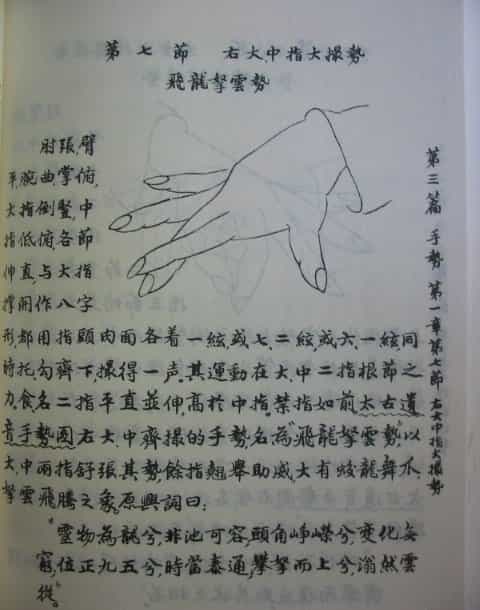 第七節 右大中指大撮勢
飛龍拏雲勢
肘張，臂
平，腕曲，掌俯，
大指倒豎，中
指低俯，各節
伸直，與大指
撑開作八字
形，都用指頭肉面各着一絃或七二絃，或六、一絃同
時托勾齊下，撮得一声。其運動在大、中二指根節之
力。食名二指平直並伸，高於中指，禁指如前。太古遺
音手勢圖右大、中齊撮的手勢，名為“飛龍拏雲勢”，以
大、中兩指舒張其勢，餘指翹舉助威，大有蛟龍舞爪、
拏雲飛騰之象。原興詞曰：
“靈物為龍兮，非池可容，頭角崢嶸兮，變化無
窮，位正九五兮，時當泰通，攀拏而上兮，滃然雲
從。”
第三篇 手勢 第一章 第七節 右大中指大撮勢